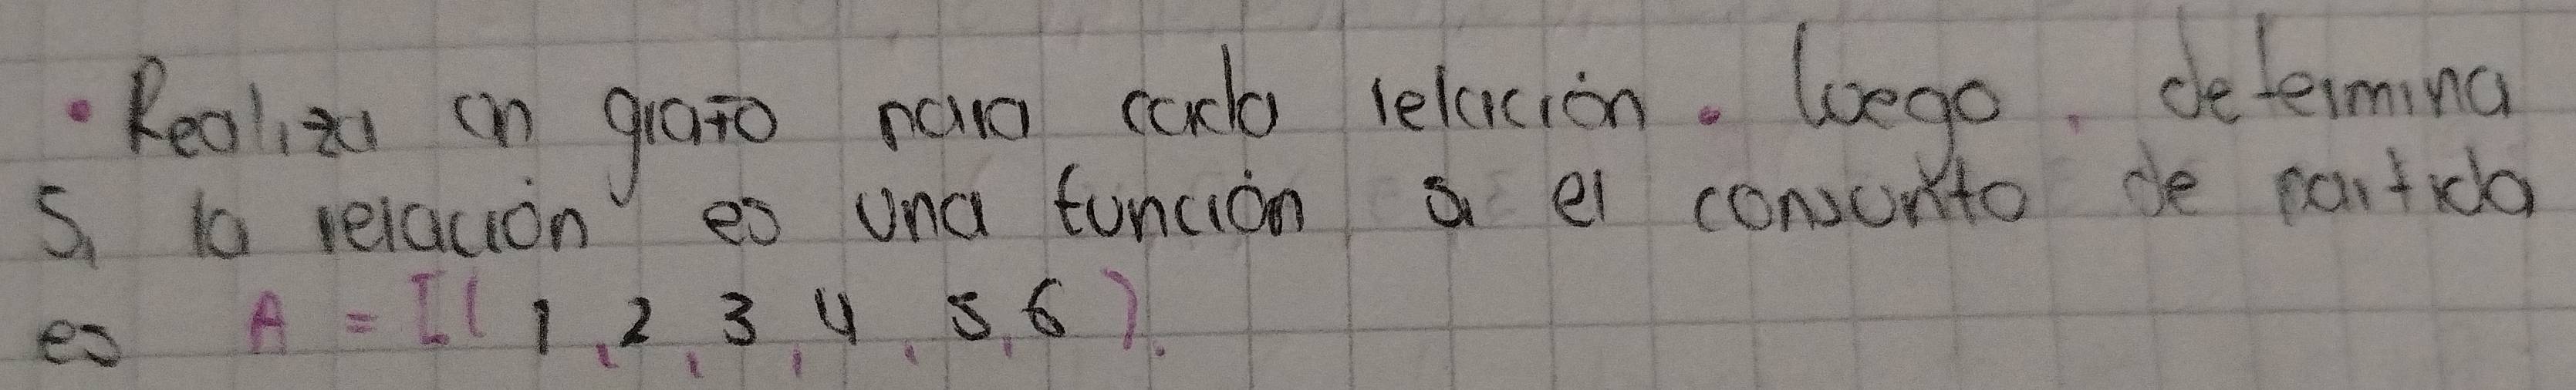 • Realiza un grafo para cada relación. luego, determina
Si la relación es una función si el conjunto de partida
es A = [( 1, 2, 3, 4, 5, 6 ).